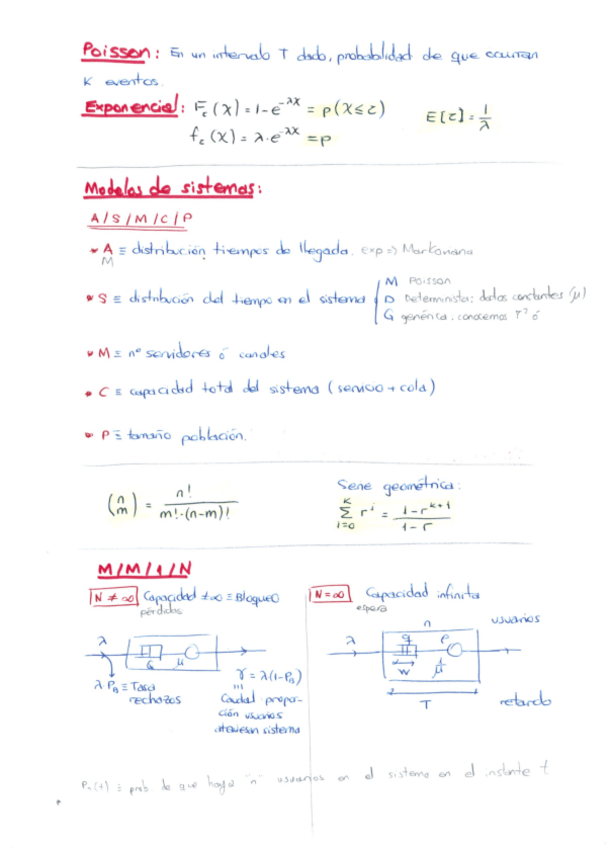 Poisson: En un intervalo T dado, probabilidad de que ocurran
K eventos.
Exponencial: F_c(X) = 1-e^{-λX} = p(X≤z) E[z] = 1/λ
f_c(X) = λ·e^{-λX} = p
Modelos de sistemas:
A/S/M/C/P
• A ≡ distribución tiempos de llegada. exp => Markoviana
M
• S ≡ distribución del tiempo en el sistema
M Poisson
D Determinista: datos constantes (μ)
G genérica: conocemos T² ó
• M ≡ nº servidores ó canales
• C ≡ capacidad total del sistema (servicio + cola)
• P ≡ tamaño población.
(n m) = n! / m!·(n-m)!
Serie geométrica:
∑_{i=0}^{K} r^i = 1-r^{k+1} / 1-r
M/M/1/N
N ≠ ∞ Capacidad ≠ ∞ ≡ Bloqueo
pérdidas
λ
μ
λ P_B ≡ Tasa
rechazos
γ = λ(1-P_B)
Caudal propor-
ción usuarios
atraviesan sistema
N = ∞ Capacidad infinita
espera
n usuarios
λ q ρ
W 1/μ
T retardo
P_n(t) ≡ prob de que haya "n" usuarios en el sistema en el instante t